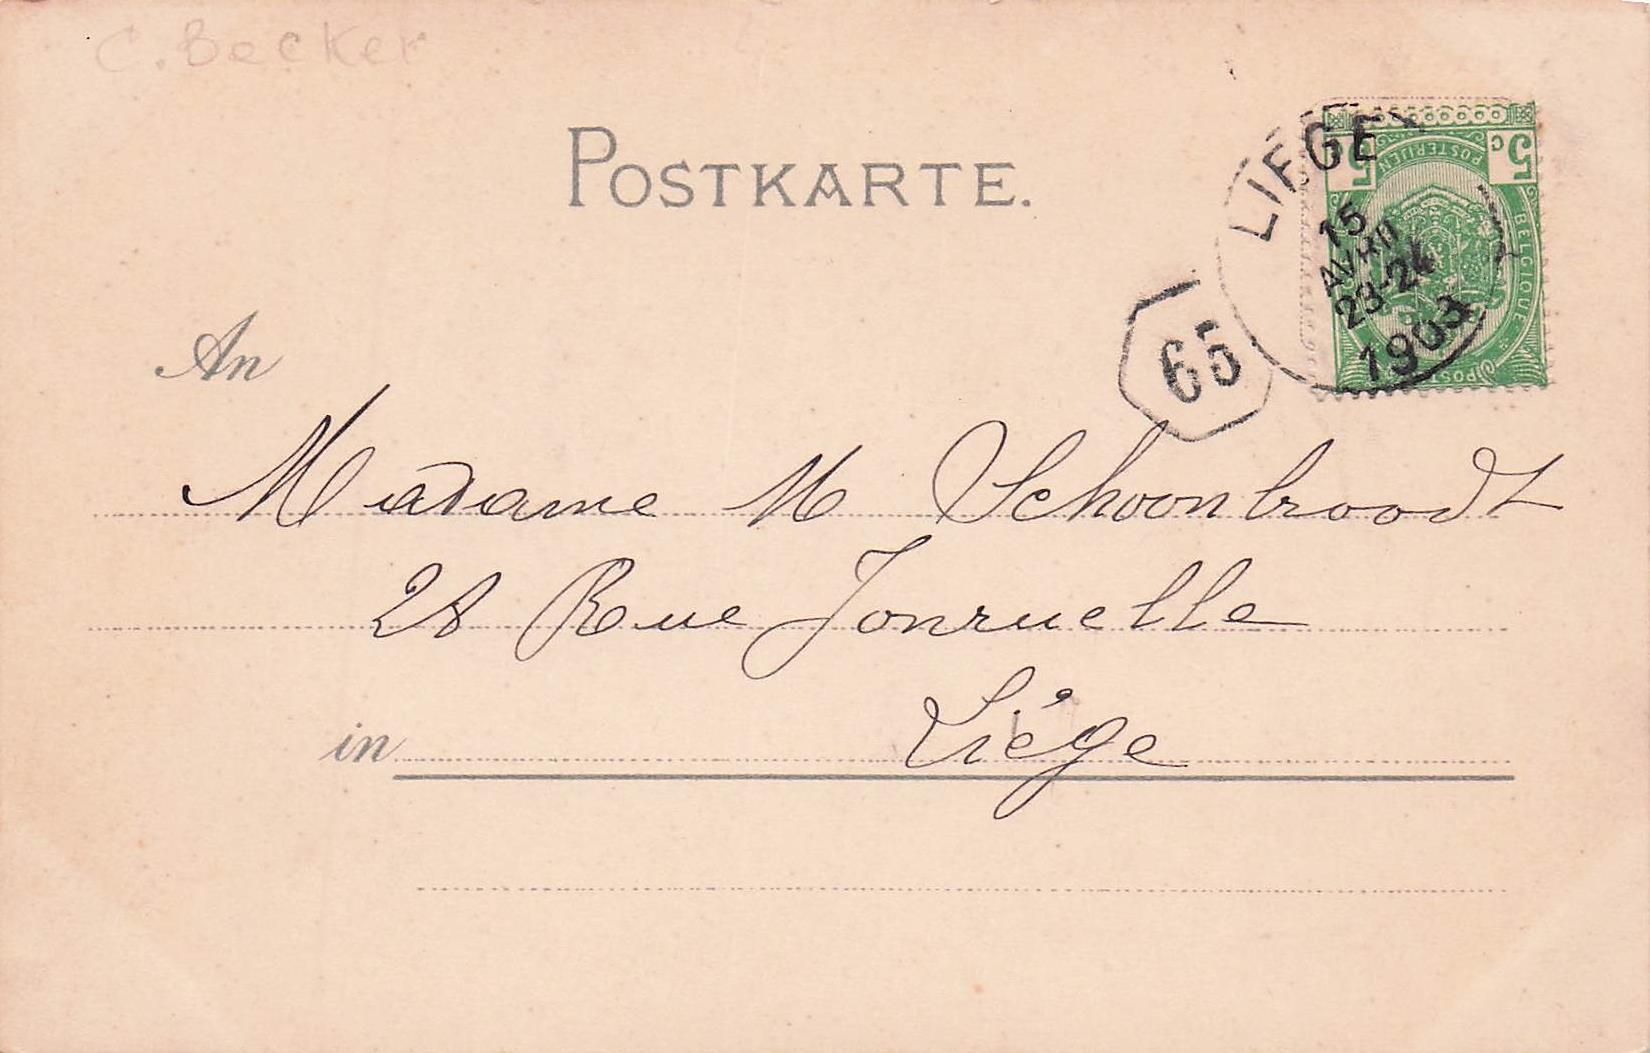 C. Becker
POSTKARTE.
LIEGE
15
AVRIL
23-24
1903
5 c 5
POSTERIJEN
BELGIQUE
65
An
Madame M Schoonbroodt
28 Rue Jonruelle
in Liége